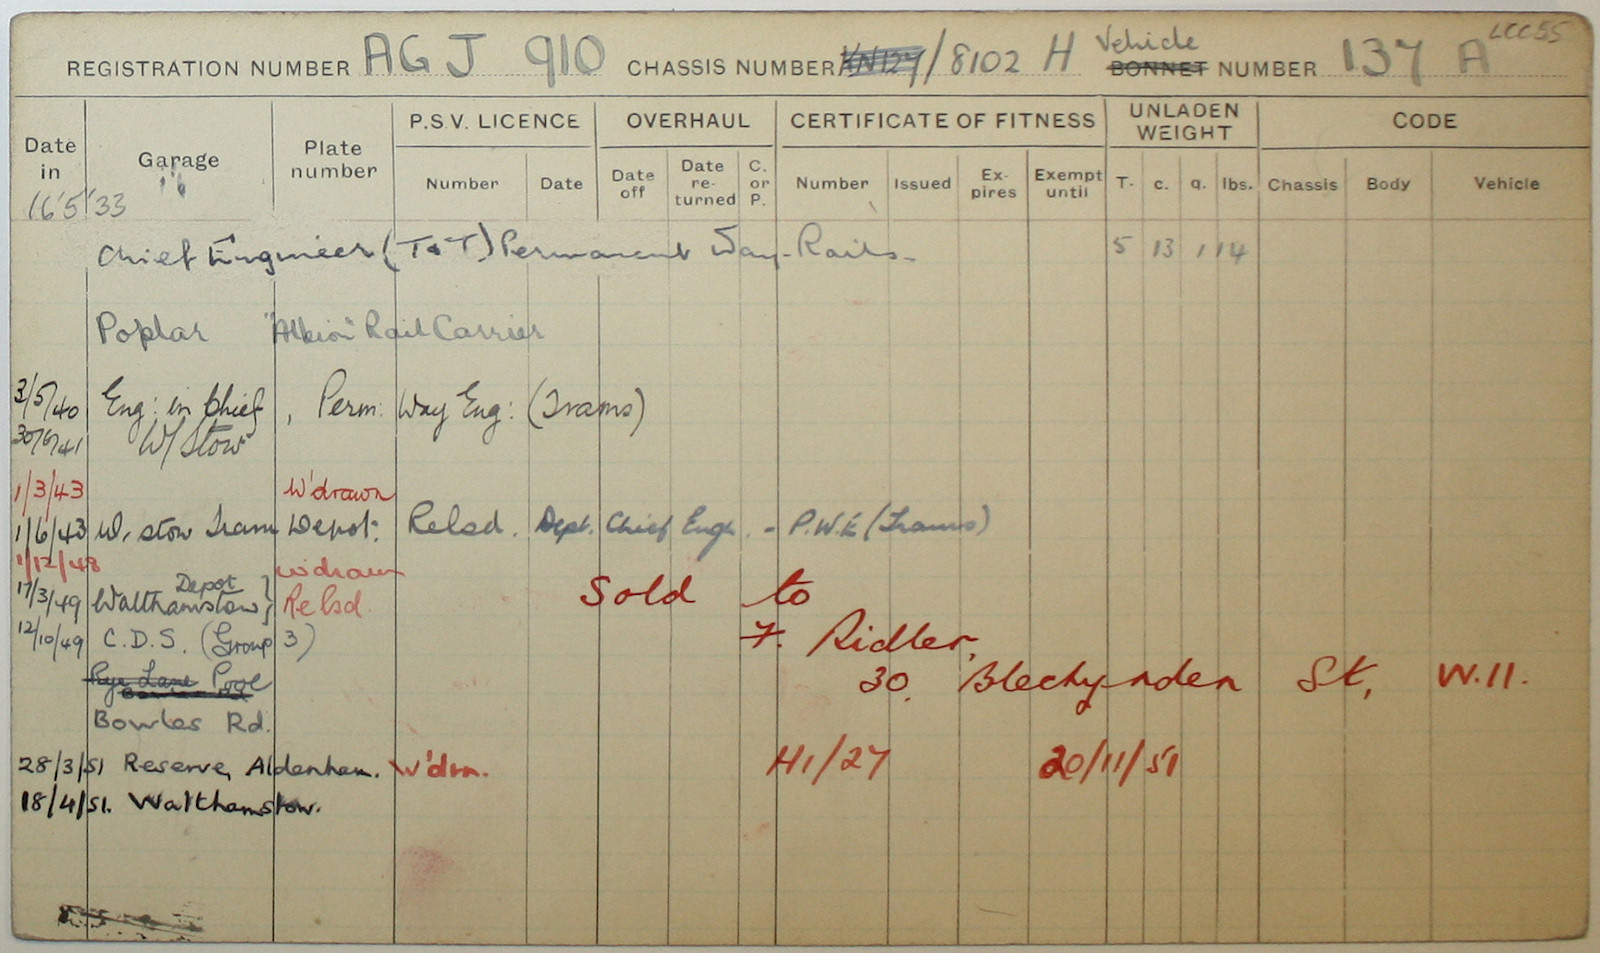 LCC55
REGISTRATION NUMBER AGJ 910 CHASSIS NUMBER /8102 H Vehicle BONNET NUMBER 137 A
P.S.V. LICENCE OVERHAUL CERTIFICATE OF FITNESS UNLADEN WEIGHT CODE
Date in Garage Plate number Number Date Date off Date re-turned C. or P. Number Issued Ex-pires Exempt until T. c. q. lbs. Chassis Body Vehicle
16'5'33
Chief Engineer (T&T) Permanent Way-Rails- 5 13 1 14
Poplar "Albion" Rail Carrier
3/5/40 Eng: in Chief, Perm: Way Eng: (Trams)
30/6/41 W/Stow
1/3/43 W'drawn
1/6/43 W. stow Tram Depot: Relsd. Dept. Chief Engr. - P.W.E (Trams)
1/12/48 widrawn
17/3/49 Walthamstow Depot } Relsd. Sold to
12/10/49 C.D.S. (Group 3) F. Ridler,
Rye Lane Pool 30, Blechynden St, W.11.
Bowles Rd
Bowles Rd.
28/3/51 Reserve, Aldenham. W'drn. H1/27 20/11/51
18/4/51. Walthamstow.